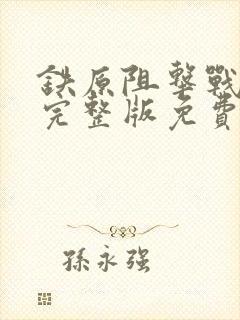 鉄原阻擊戰
完整版免費
孫永强